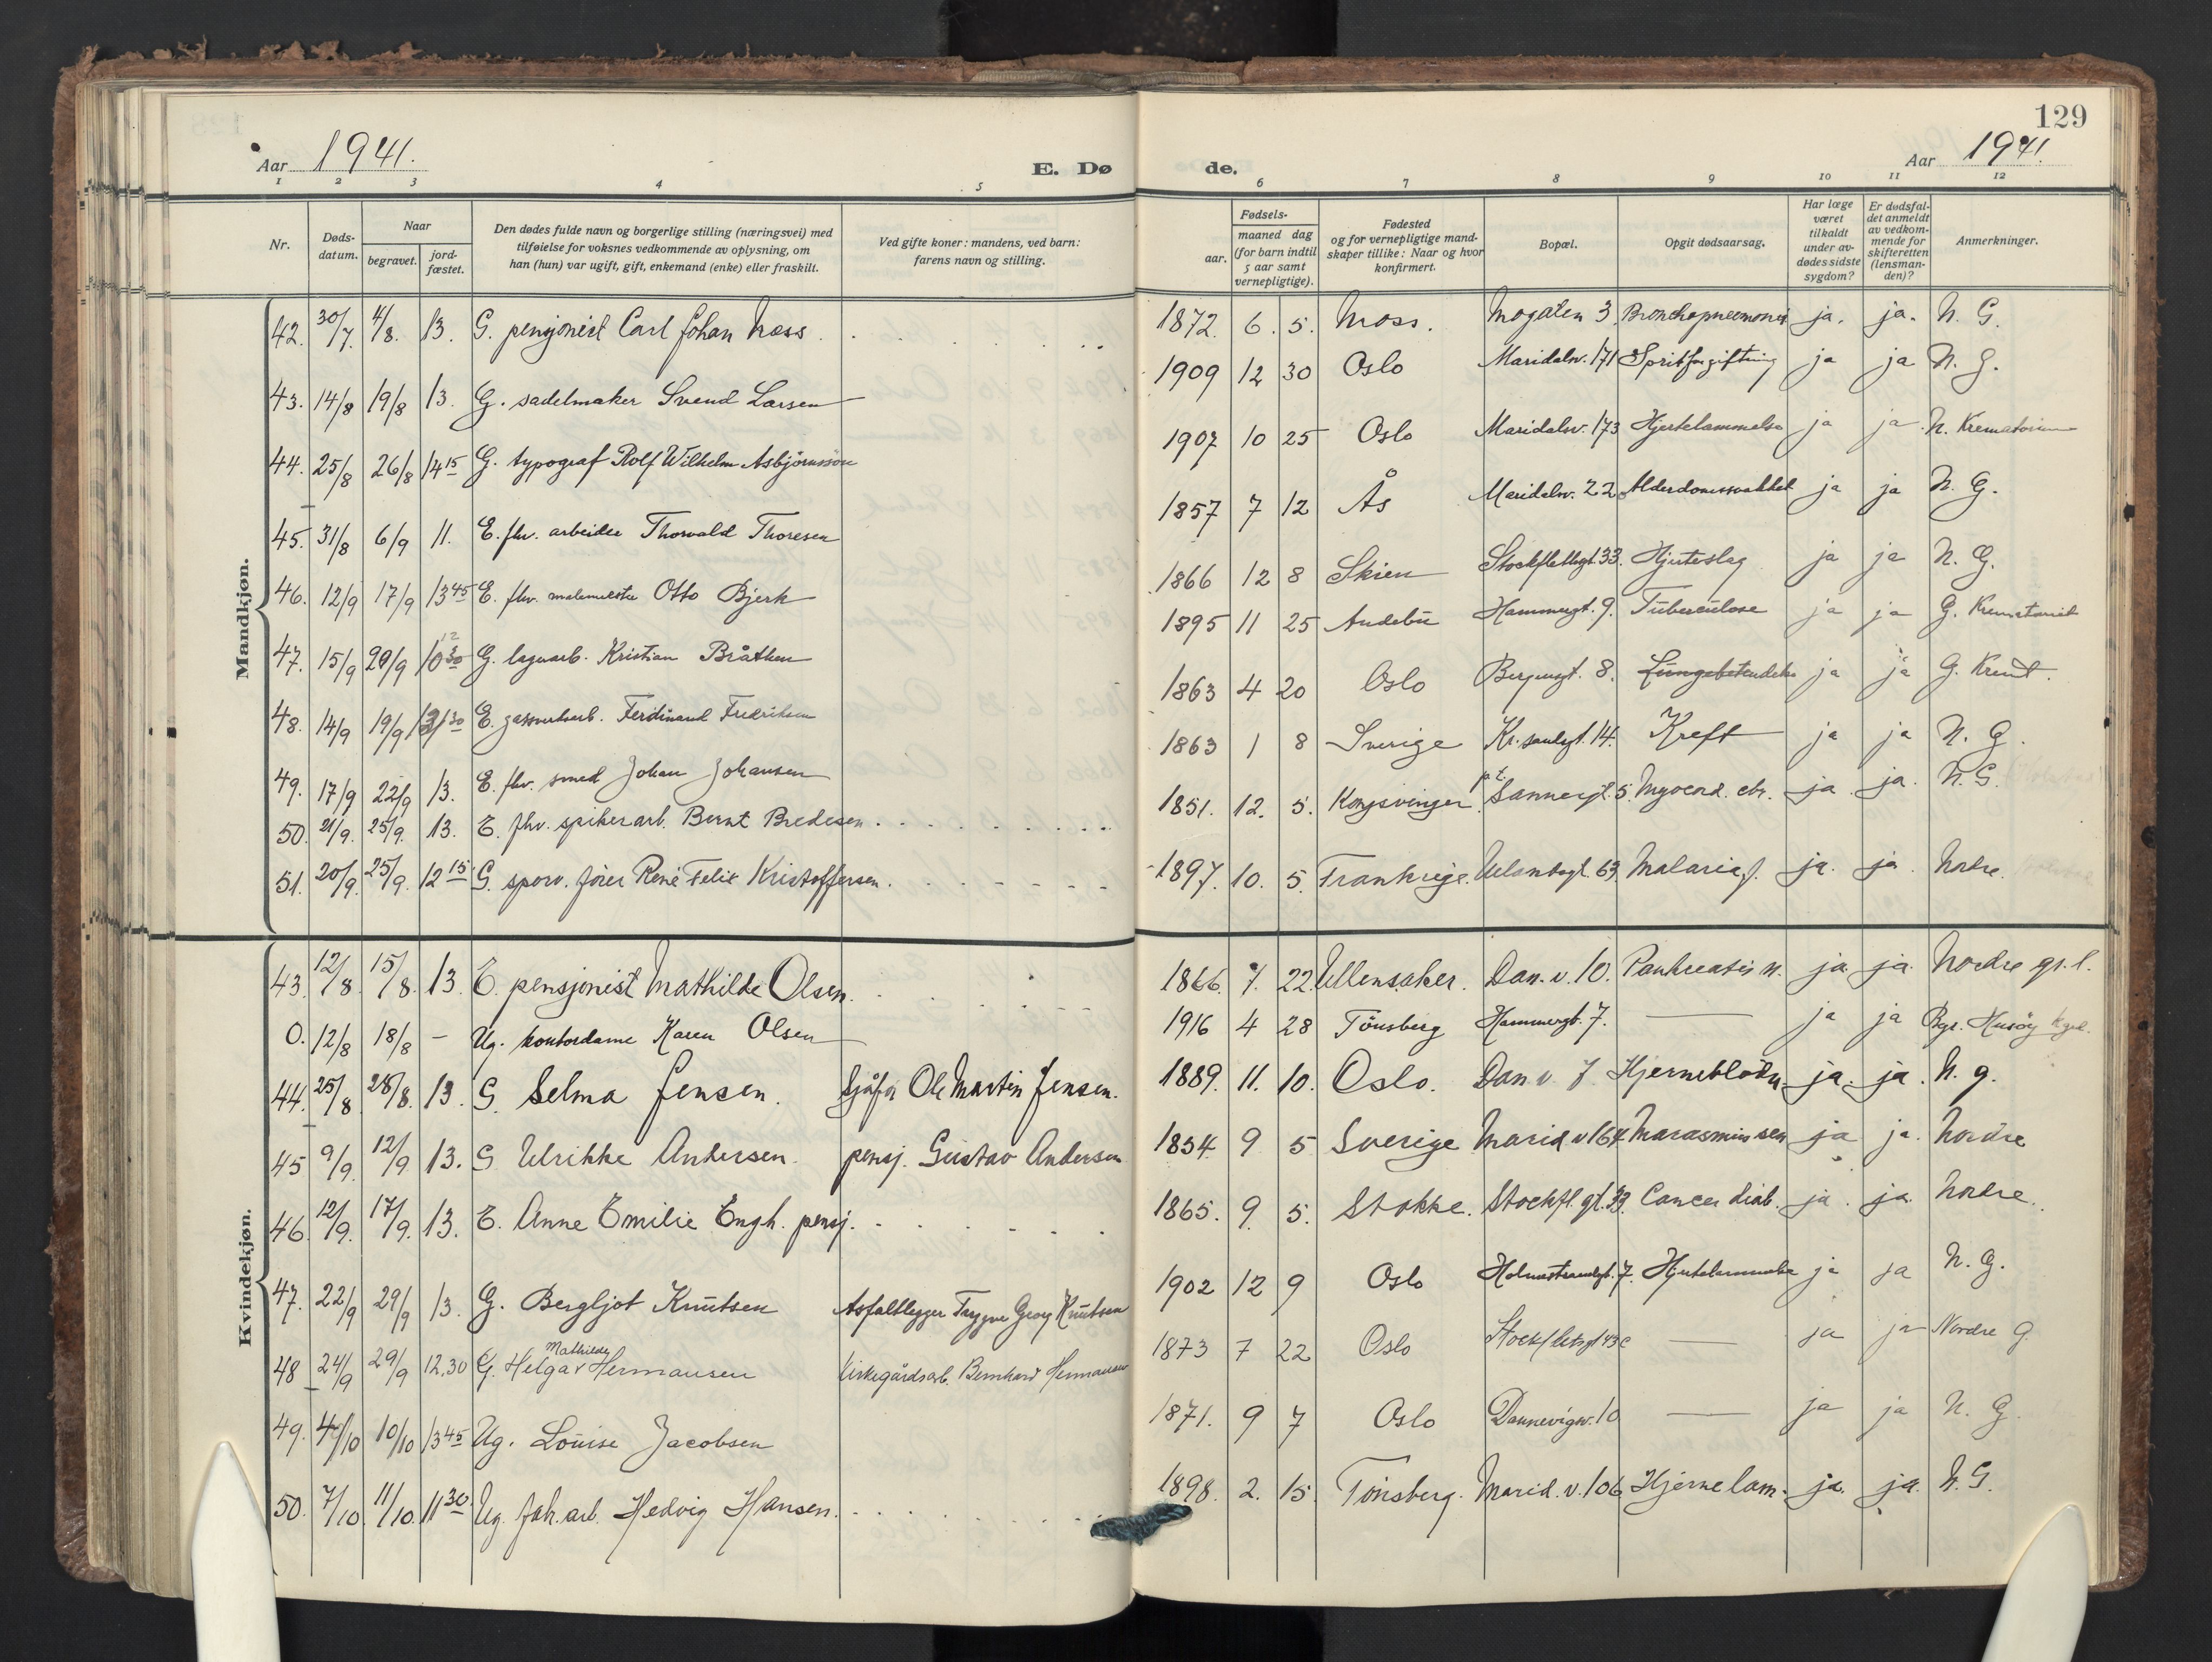 129
Aar 1941.
E. Dø
de.
Aar 1941.
1 2 3 4 5 6 7 8 9 10 11 12
Nr.
Døds-
datum.
Naar
begravet.
jord-
fæstet.
Den dødes fulde navn og borgerlige stilling (næringsvei) med
tilføielse for voksnes vedkommende av oplysning, om
han (hun) var ugift, gift, enkemand (enke) eller fraskilt.
Ved gifte koner: mandens, ved barn:
farens navn og stilling.
Fødsels-
aar.
maaned dag
(for barn indtil
5 aar samt
vernepligtige).
Fødested
og for vernepligtige mand-
skaper tillike: Naar og hvor
konfirmert.
Bopæl.
Opgit dødsaarsag.
Har læge
været
tilkaldt
under av-
dødes sidste
sygdom?
Er dødsfal-
det anmeldt
av vedkom-
mende for
skifteretten
(lensman-
den)?
Anmerkninger.
Mandkjøn.
42. 30/7. 4/8. 13. G. pensjonist Carl Johan Næss 1872. 6. 5. Moss. Mogaten 3. Bronchopneumoni ja. ja. N. G.
43. 14/8 19/8 13. G. sadelmaker Svend Larsen 1909 12 30 Oslo Maridalsv. 171 Spritforgiftning ja ja N. G.
44. 25/8 26/8 14 15 G. typograf Rolf Wilhelm Asbjörnsson 1907 10 25 Oslo Maridalsv. 173 Hjertelammelse ja ja N. Krematorium
45. 31/8 6/9 11. E. fhv. arbeider Thorvald Thoresen 1857 7 12 Ås Maridalsv. 22 Alderdomssvakhet ja ja N. G.
46. 12/9 17/9 13 45 E. fhv. malermester Otto Bjerk 1866 12 8 Skien Stockflethsgt. 33. Hjerteslag ja ja N. G.
47. 15/9 20/9 10 30 G. lagerarb. Kristian Bråthen 1895 11 25 Andebu Hammergt. 9. Tuberculose ja ja G. Krematoriet
48. 14/9 19/9 30 E. gassverksarb. Ferdinand Fredriksen 1863 4 20 Oslo Bergensgt. 8. Lungebetendelse ja ja G. Kremt.
49. 17/9 22/9 13. E. fhv. smed Johan Johansen 1863 1 8 Sverige Kr.sandsgt. 14. Kreft ja ja N. G.
50. 21/9. 25/9. 13. E. fhv. spikerarb. Bernt Bredesen 1851. 12. 5. Kongsvinger p.t. Sannergt. 5. Myocard. chr. ja ja. N. G.
51. 20/9. 25/9. 12 15 G. sporv. fører René Felix Kristoffersen 1897. 10. 5. Frankrige. Uelandsgt. 63. Malaria ja. ja. Nordre.
Kvindekjøn.
43. 12/8. 15/8. 13. E. pensjonist Mathilde Olsen. 1866. 7. 22 Ullensaker. Dan. v. 10. Pankreatis n. ja ja. Nordre gr.l.
0. 12/8 18/8 – Ug. kontordame Karen Olsen 1916 4 28 Tönsberg Hammergt. 7. — ja ja Bgr. Husöy kgd.
44. 25/8 28/8. 13. G. Selma Jensen. Sjåfør Ole Martin Jensen. 1889. 11. 10. Oslo. Dan v. 7 Hjerneblødn. ja. ja. N. g.
45 9/9. 12/9 13. G Ulrikke Andersen. pensj. Gustav Andersen 1854 9 5 Sverige Marid v 164 Marasmus sen ja ja. Nordre
46. 12/9. 17/9. 13. E. Anne Emilie Engh. pensj. 1865. 9. 5. Stokke. Stockfl. gt. 33. Cancer diab. ja. ja. Nordre.
47. 22/9 29/9 13. G. Bergljot Knutsen Asfaltlegger Trygve Georg Knutsen 1902 12 9 Oslo Holmestrandgt. 7. Hjertelammelse ja ja N. G.
48 24/9 29/9 12.30 G. Helga Mathilde Hermansen kirkegårdsarb. Bernhard Hermansen 1873 7 22 Oslo Stockflethsgt 43c — ja ja Nordre G
49. 4/10 10/10 13 45 Ug. Louise Jacobsen 1871. 9 7 Oslo Dannevigsv. 10 — ja ja N. G.
50. 7/10 11/10. 11 30 Ug. fab. arb. Hedvig Hansen. 1898. 2. 15. Tönsberg. Marid. v. 106 Hjernelam. ja. ja. N. G.